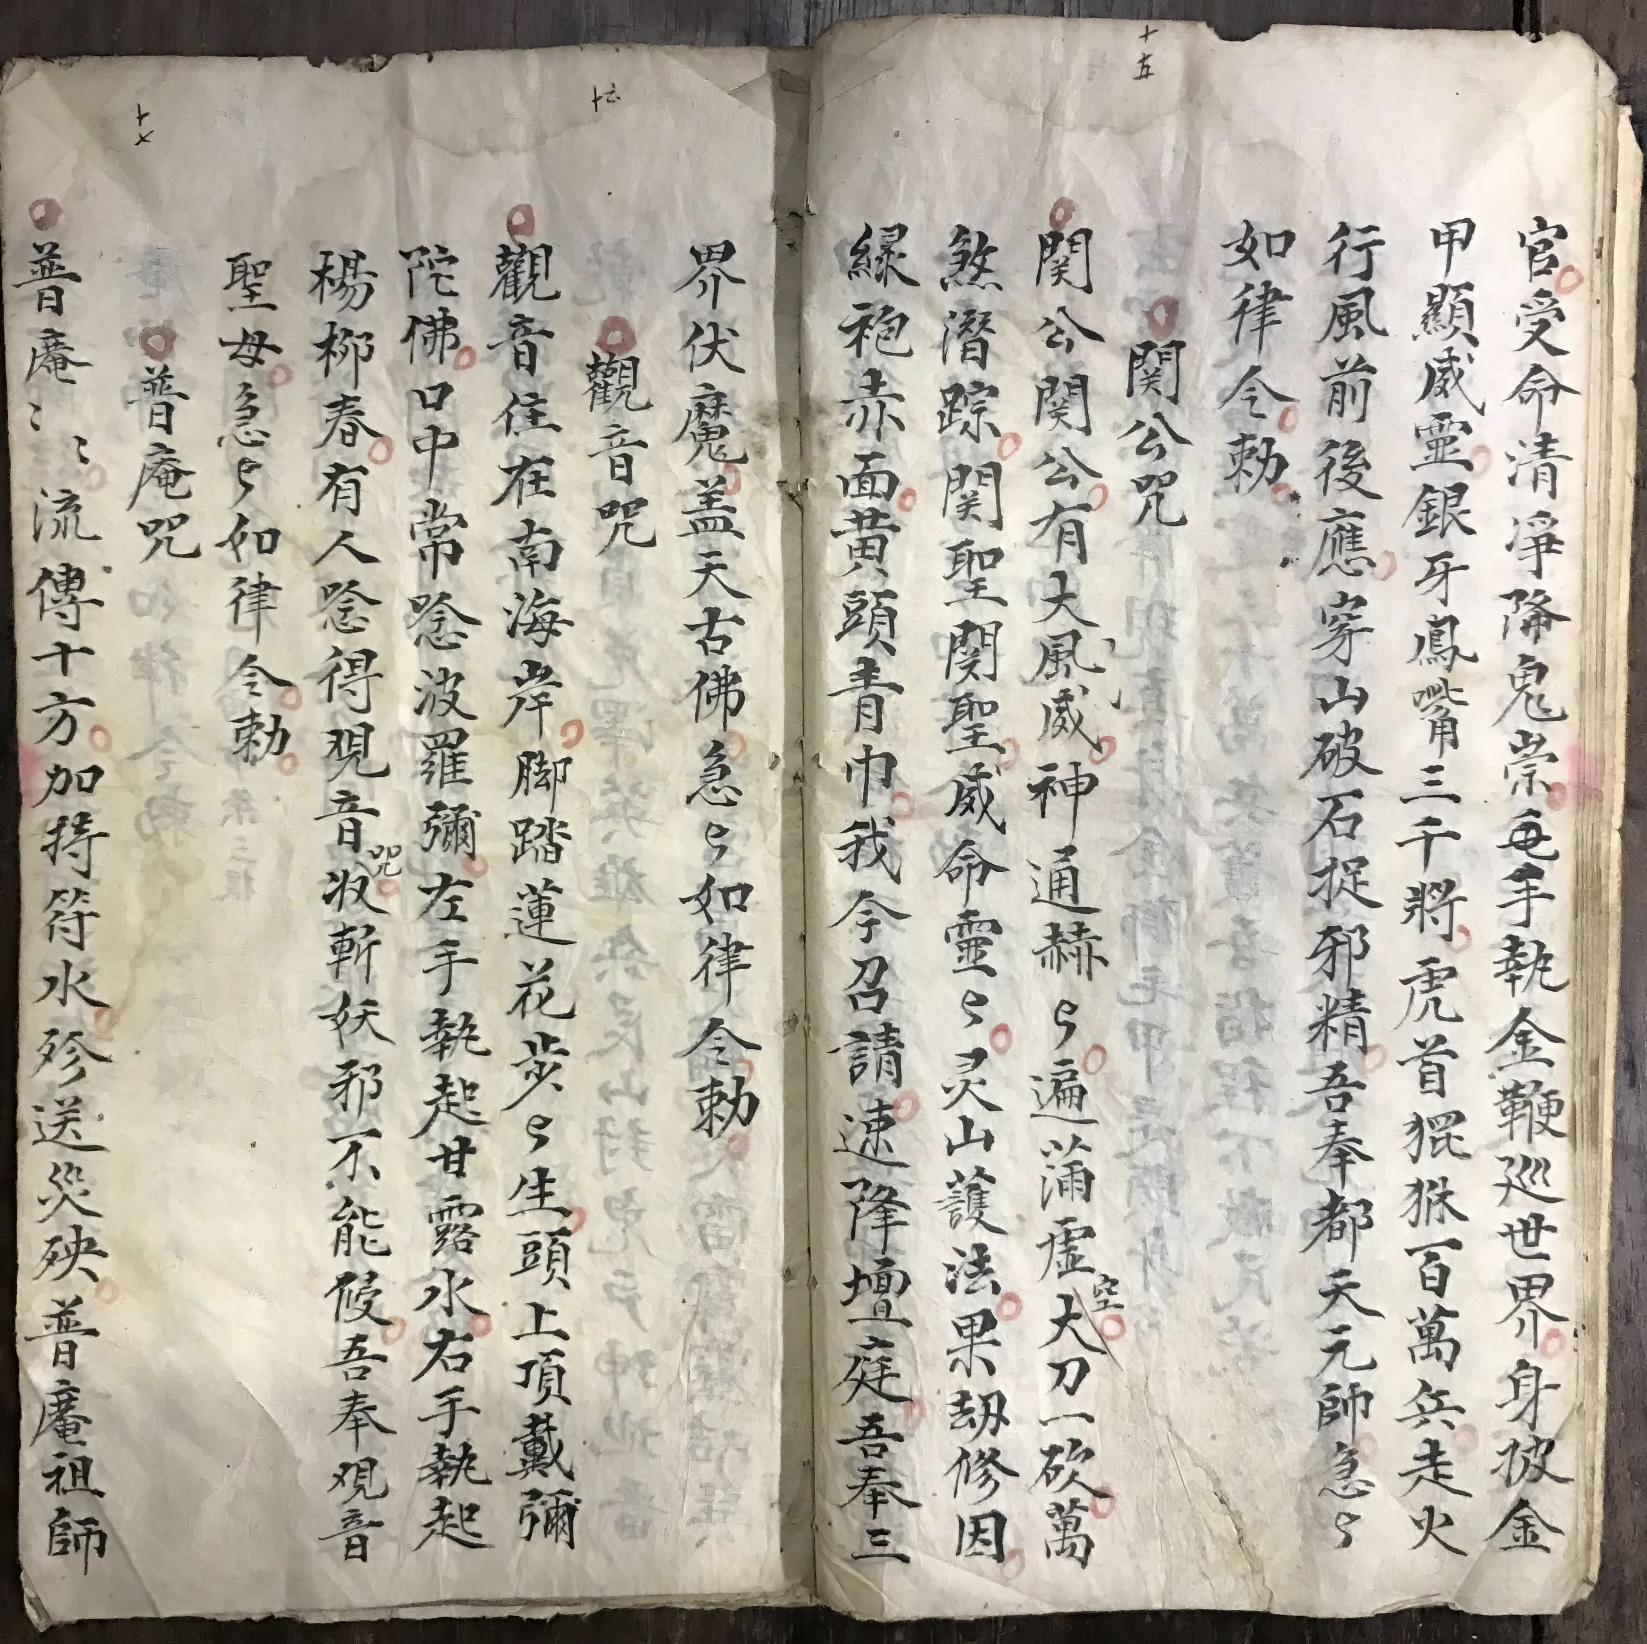 十五
官受命清淨降鬼祟每手執金鞭巡世界身披金
甲顯威靈銀牙鳳嘴三千將虎首猑猴百萬兵走火
行風前後應穿山破石捉邪精吾奉都天元師急〻
如律令勅
関公咒
関公関公有大風威神通赫〻遍蒲虛空大刀一砍萬
煞潛踪関聖関聖威命靈〻灵山護法果劫修因
緑袍赤面黄頭青巾我今召請速降壇庭吾奉三
十六
界伏魔盖天古佛急〻如律令勅
觀音咒
觀音住在南海岸脚踏蓮花步〻生頭上頂戴彌
陀佛口中常唸波羅彌左手執起甘露水右手執起
楊柳春有人唸得观音咒收斬妖邪不能侵吾奉观音
聖母急〻如律令勅
十七
普庵咒
普庵〻〻流傳十方加持符水殄送災殃普庵祖師